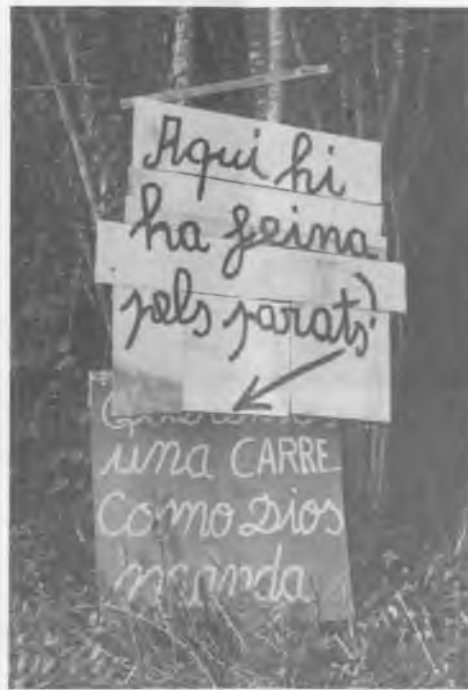 Aqui hi
ha feina
pels parats
Queremos
una CARRE
como Dios
manda